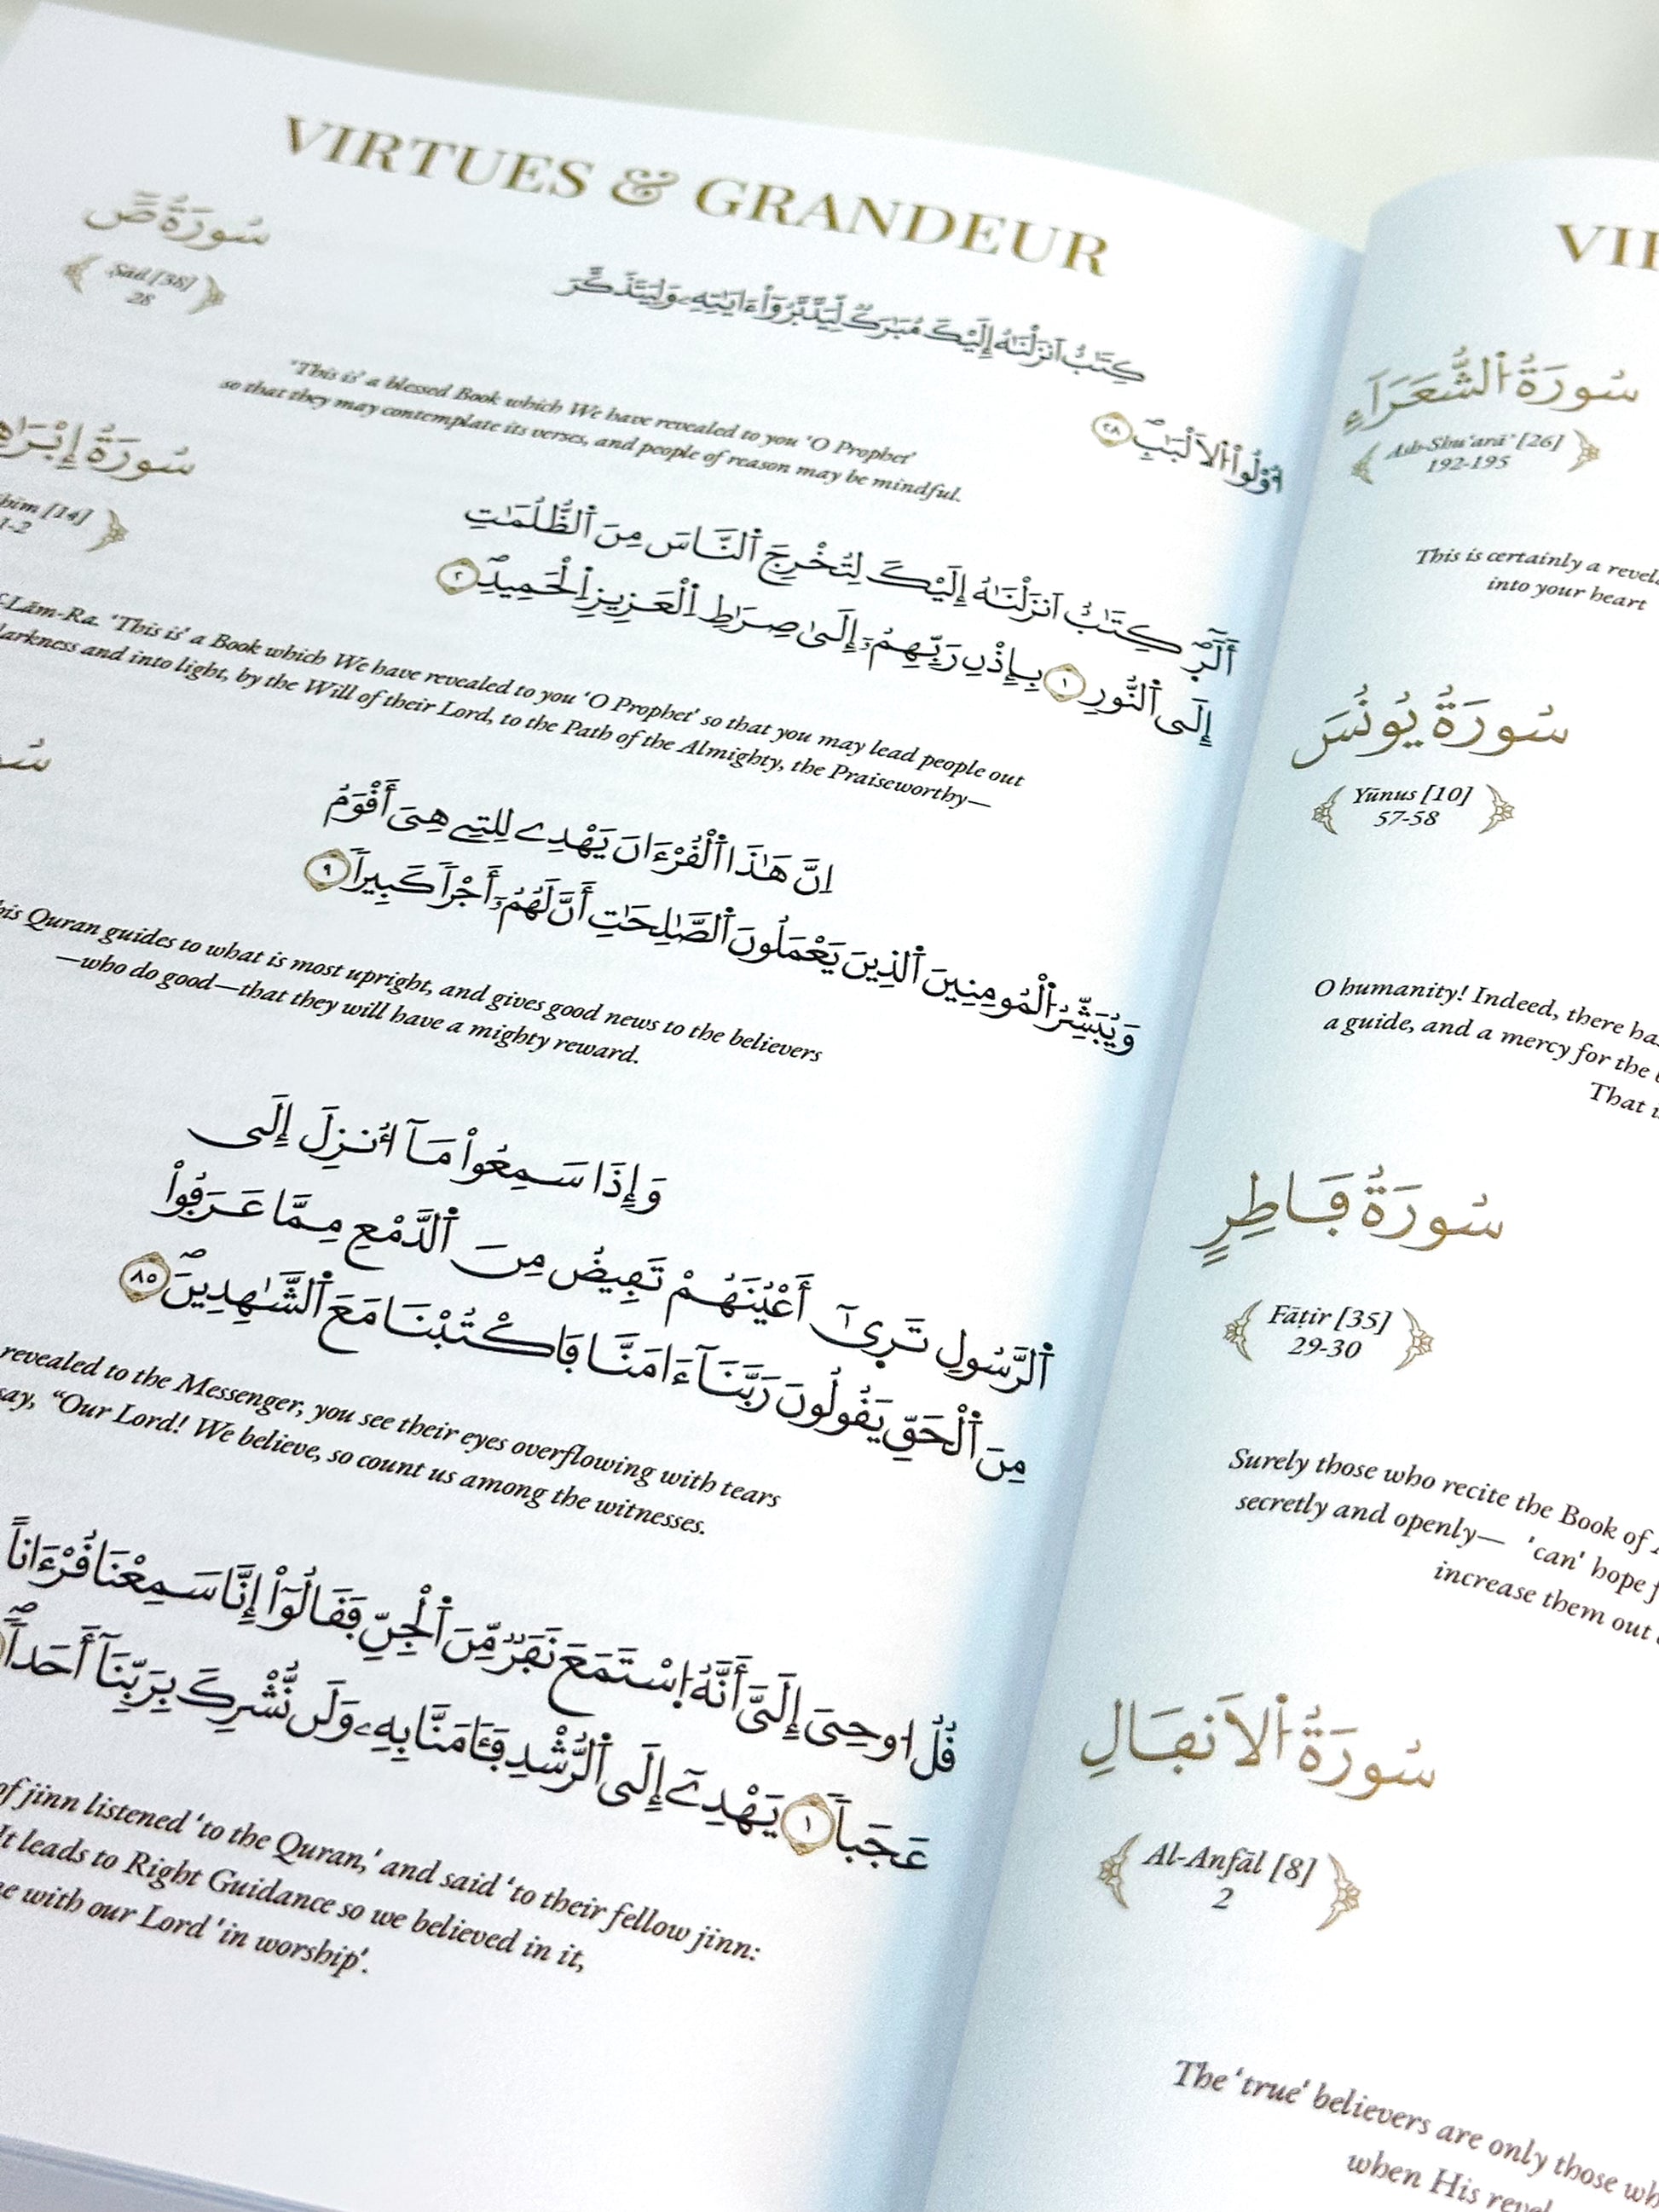 VIRTUES & GRANDEUR
سُورَةُ صَٓ
Ṣād [38]
28
كِتَٰبٌ اَنزَلْنَٰهُ إِلَيْكَ مُبَٰرَكٌ لِّيَدَّبَّرُوٓاْ ءَايَٰتِهِۦ وَلِيَتَذَكَّرَ
أُوْلُواْ اُ۬لَالْبَٰبِۖ ٢٨
'This is' a blessed Book which We have revealed to you 'O Prophet'
so that they may contemplate its verses, and people of reason may be mindful.
سُورَةُ إِبْرَاهِ
hīm [14]
1-2
أَلَٓرۖ كِتَٰبٌ اَنزَلْنَٰهُ إِلَيْكَ لِتُخْرِجَ اَ۬لنَّاسَ مِنَ اَ۬لظُّلُمَٰتِ
إِلَى اَ۬لنُّورِ ١ بِإِذْنِ رَبِّهِمُۥٓ إِلَىٰ صِرَٰطِ اِ۬لْعَزِيزِ اِ۬لْحَمِيدِۖ ٢
-Lām-Ra. 'This is' a Book which We have revealed to you 'O Prophet' so that you may lead people out
arkness and into light, by the Will of their Lord, to the Path of the Almighty, the Praiseworthy—
سُو
اِنَّ هَٰذَا اَ۬لْقُرْءَانَ يَهْدِے لِلتِے هِىَ أَقْوَمُ
وَيُبَشِّرُ اُ۬لْمُومِنِينَ اَ۬لذِينَ يَعْمَلُونَ اَ۬لصَّٰلِحَٰتِ أَنَّ لَهُمُۥٓ أَجْراٗ كَبِيراٗ ٩
his Quran guides to what is most upright, and gives good news to the believers
—who do good—that they will have a mighty reward.
وَإِذَا سَمِعُواْ مَآ أُنزِلَ إِلَى
اَ۬لرَّسُولِ تَرَىٰٓ أَعْيُنَهُمْ تَفِيضُ مِنَ اَ۬لدَّمْعِ مِمَّا عَرَفُواْ
مِنَ اَ۬لْحَقِّ يَقُولُونَ رَبَّنَآ ءَامَنَّا فَاكْتُبْنَا مَعَ اَ۬لشَّٰهِدِينَۖ ٨٥
revealed to the Messenger, you see their eyes overflowing with tears
say, “Our Lord! We believe, so count us among the witnesses.
قُلُ ا۟وحِىَ إِلَىَّ أَنَّهُ اُ۪سْتَمَعَ نَفَرٌ مِّنَ اَ۬لْجِنِّ فَقَالُوٓاْ إِنَّا سَمِعْنَا قُرْءَاناً
عَجَباٗ ١ يَهْدِےٓ إِلَى اَ۬لرُّشْدِ فَـَٔامَنَّا بِهِۦ وَلَن نُّشْرِكَ بِرَبِّنَآ أَحَداٗۖ
of jinn listened 'to the Quran,' and said 'to their fellow jinn:
It leads to Right Guidance so we believed in it,
e with our Lord 'in worship'.
VI
سُورَةُ اُ۬لشُّعَرَآءِ
Ash-Shu‘arā’ [26]
192-195
This is certainly a revel
into your heart
سُورَةُ يُونُسَ
Yūnus [10]
57-58
O humanity! Indeed, there ha
a guide, and a mercy for the
That i
سُورَةُ فَاطِرٍ
Fāṭir [35]
29-30
Surely those who recite the Book of
secretly and openly— 'can' hope f
increase them out
سُورَةُ اُ۬لَانفَالِ
Al-Anfāl [8]
2
The 'true' believers are only those wh
when His revel